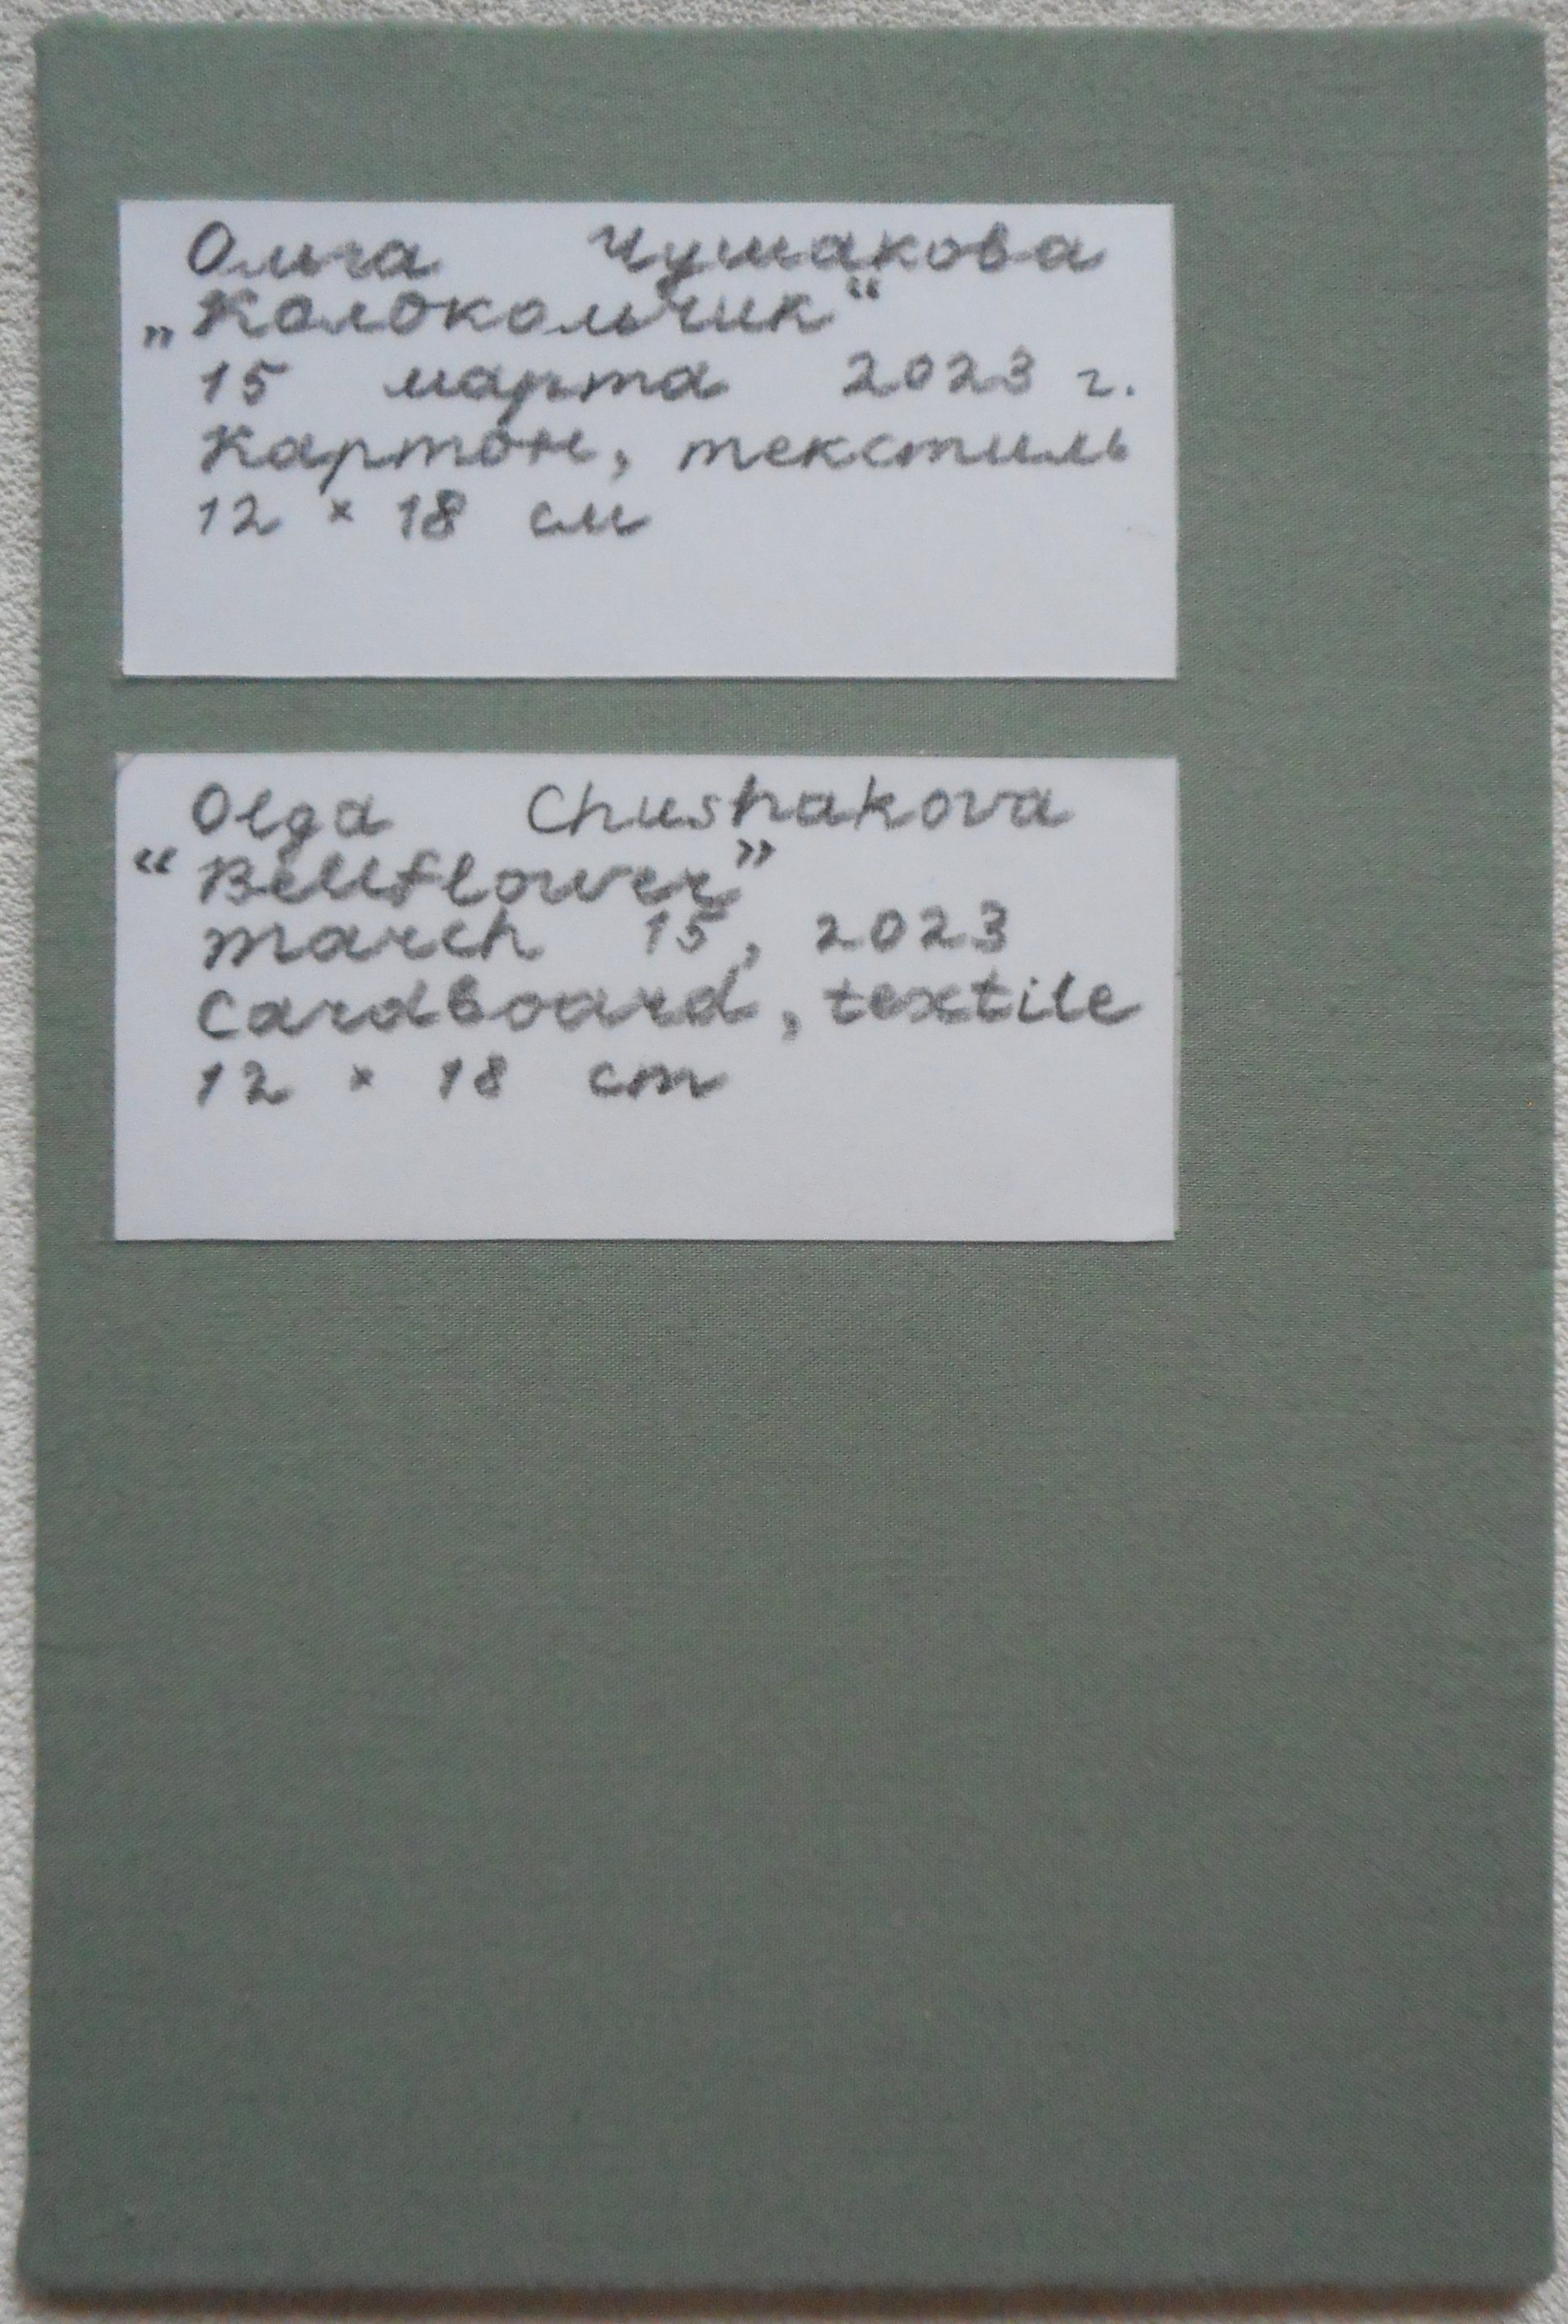 Ольга Чушакова
„Колокольчик“
15 марта 2023 г.
Картон, текстиль
12 × 18 см
Olga Chushakova
“Bellflower”
March 15, 2023
Cardboard, textile
12 × 18 cm